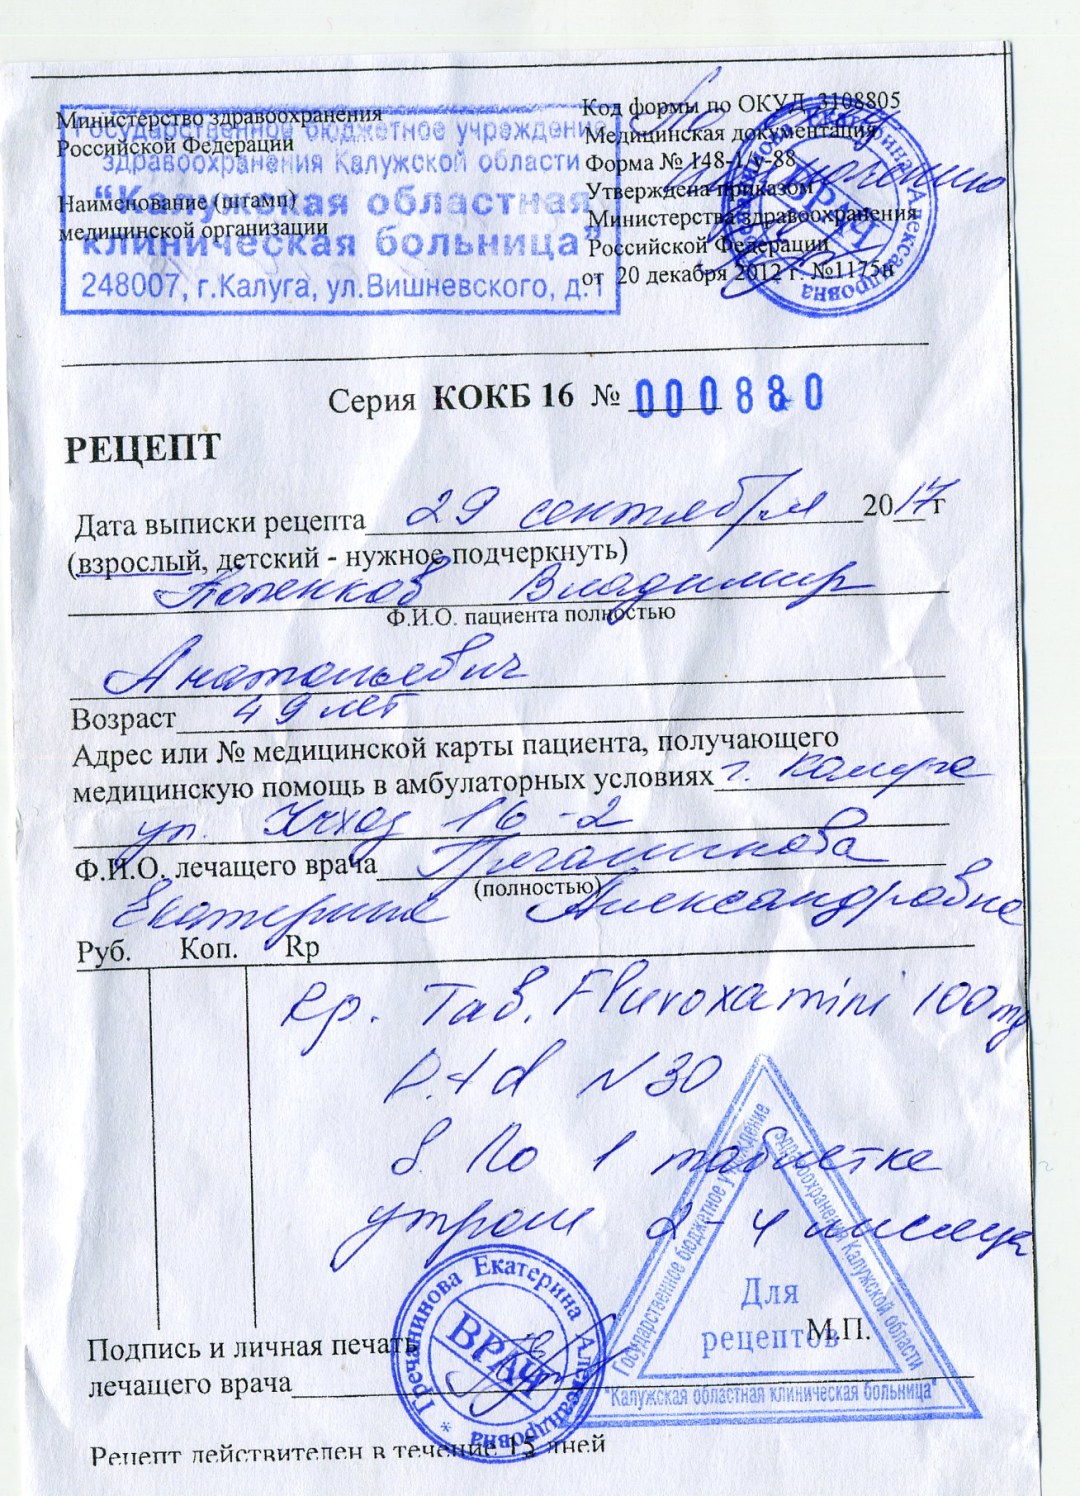 Министерство здравоохранения
Российской Федерации
Государственное бюджетное учреждение
здравоохранения Калужской области
"Калужская областная
клиническая больница"
248007, г.Калуга, ул.Вишневского, д.1
Наименование (штамп)
медицинской организации
Код формы по ОКУД 3108805
Медицинская документация
Форма № 148-1/у-88
Утверждена приказом
Министерства здравоохранения
Российской Федерации
от 20 декабря 2012 г. №1175н
По
ВРАЧ
Екатерина Александровна
Серия КОКБ 16 № 000880
РЕЦЕПТ
Дата выписки рецепта 29 сентября 2017 г
(взрослый, детский - нужное подчеркнуть)
Владимир
Ф.И.О. пациента полностью
Анатольевич
Возраст 49 лет
Адрес или № медицинской карты пациента, получающего
медицинскую помощь в амбулаторных условиях г. Калуга
ул. 16-2
Ф.И.О. лечащего врача Гречанинова
(полностью)
Екатерина Александровна
Руб. Коп. Rp
Rp. Tab. Fluvoxamini 100 mg
D.t.d N 30
S. По 1 таблетке
утром 2-4 месяца
Гречанинова Екатерина Александровна
ВРАЧ
Государственное бюджетное учреждение
здравоохранения Калужской области
"Калужская областная клиническая больница"
Для
рецептов
М.П.
Подпись и личная печать
лечащего врача
Рецепт действителен в течение 15 дней